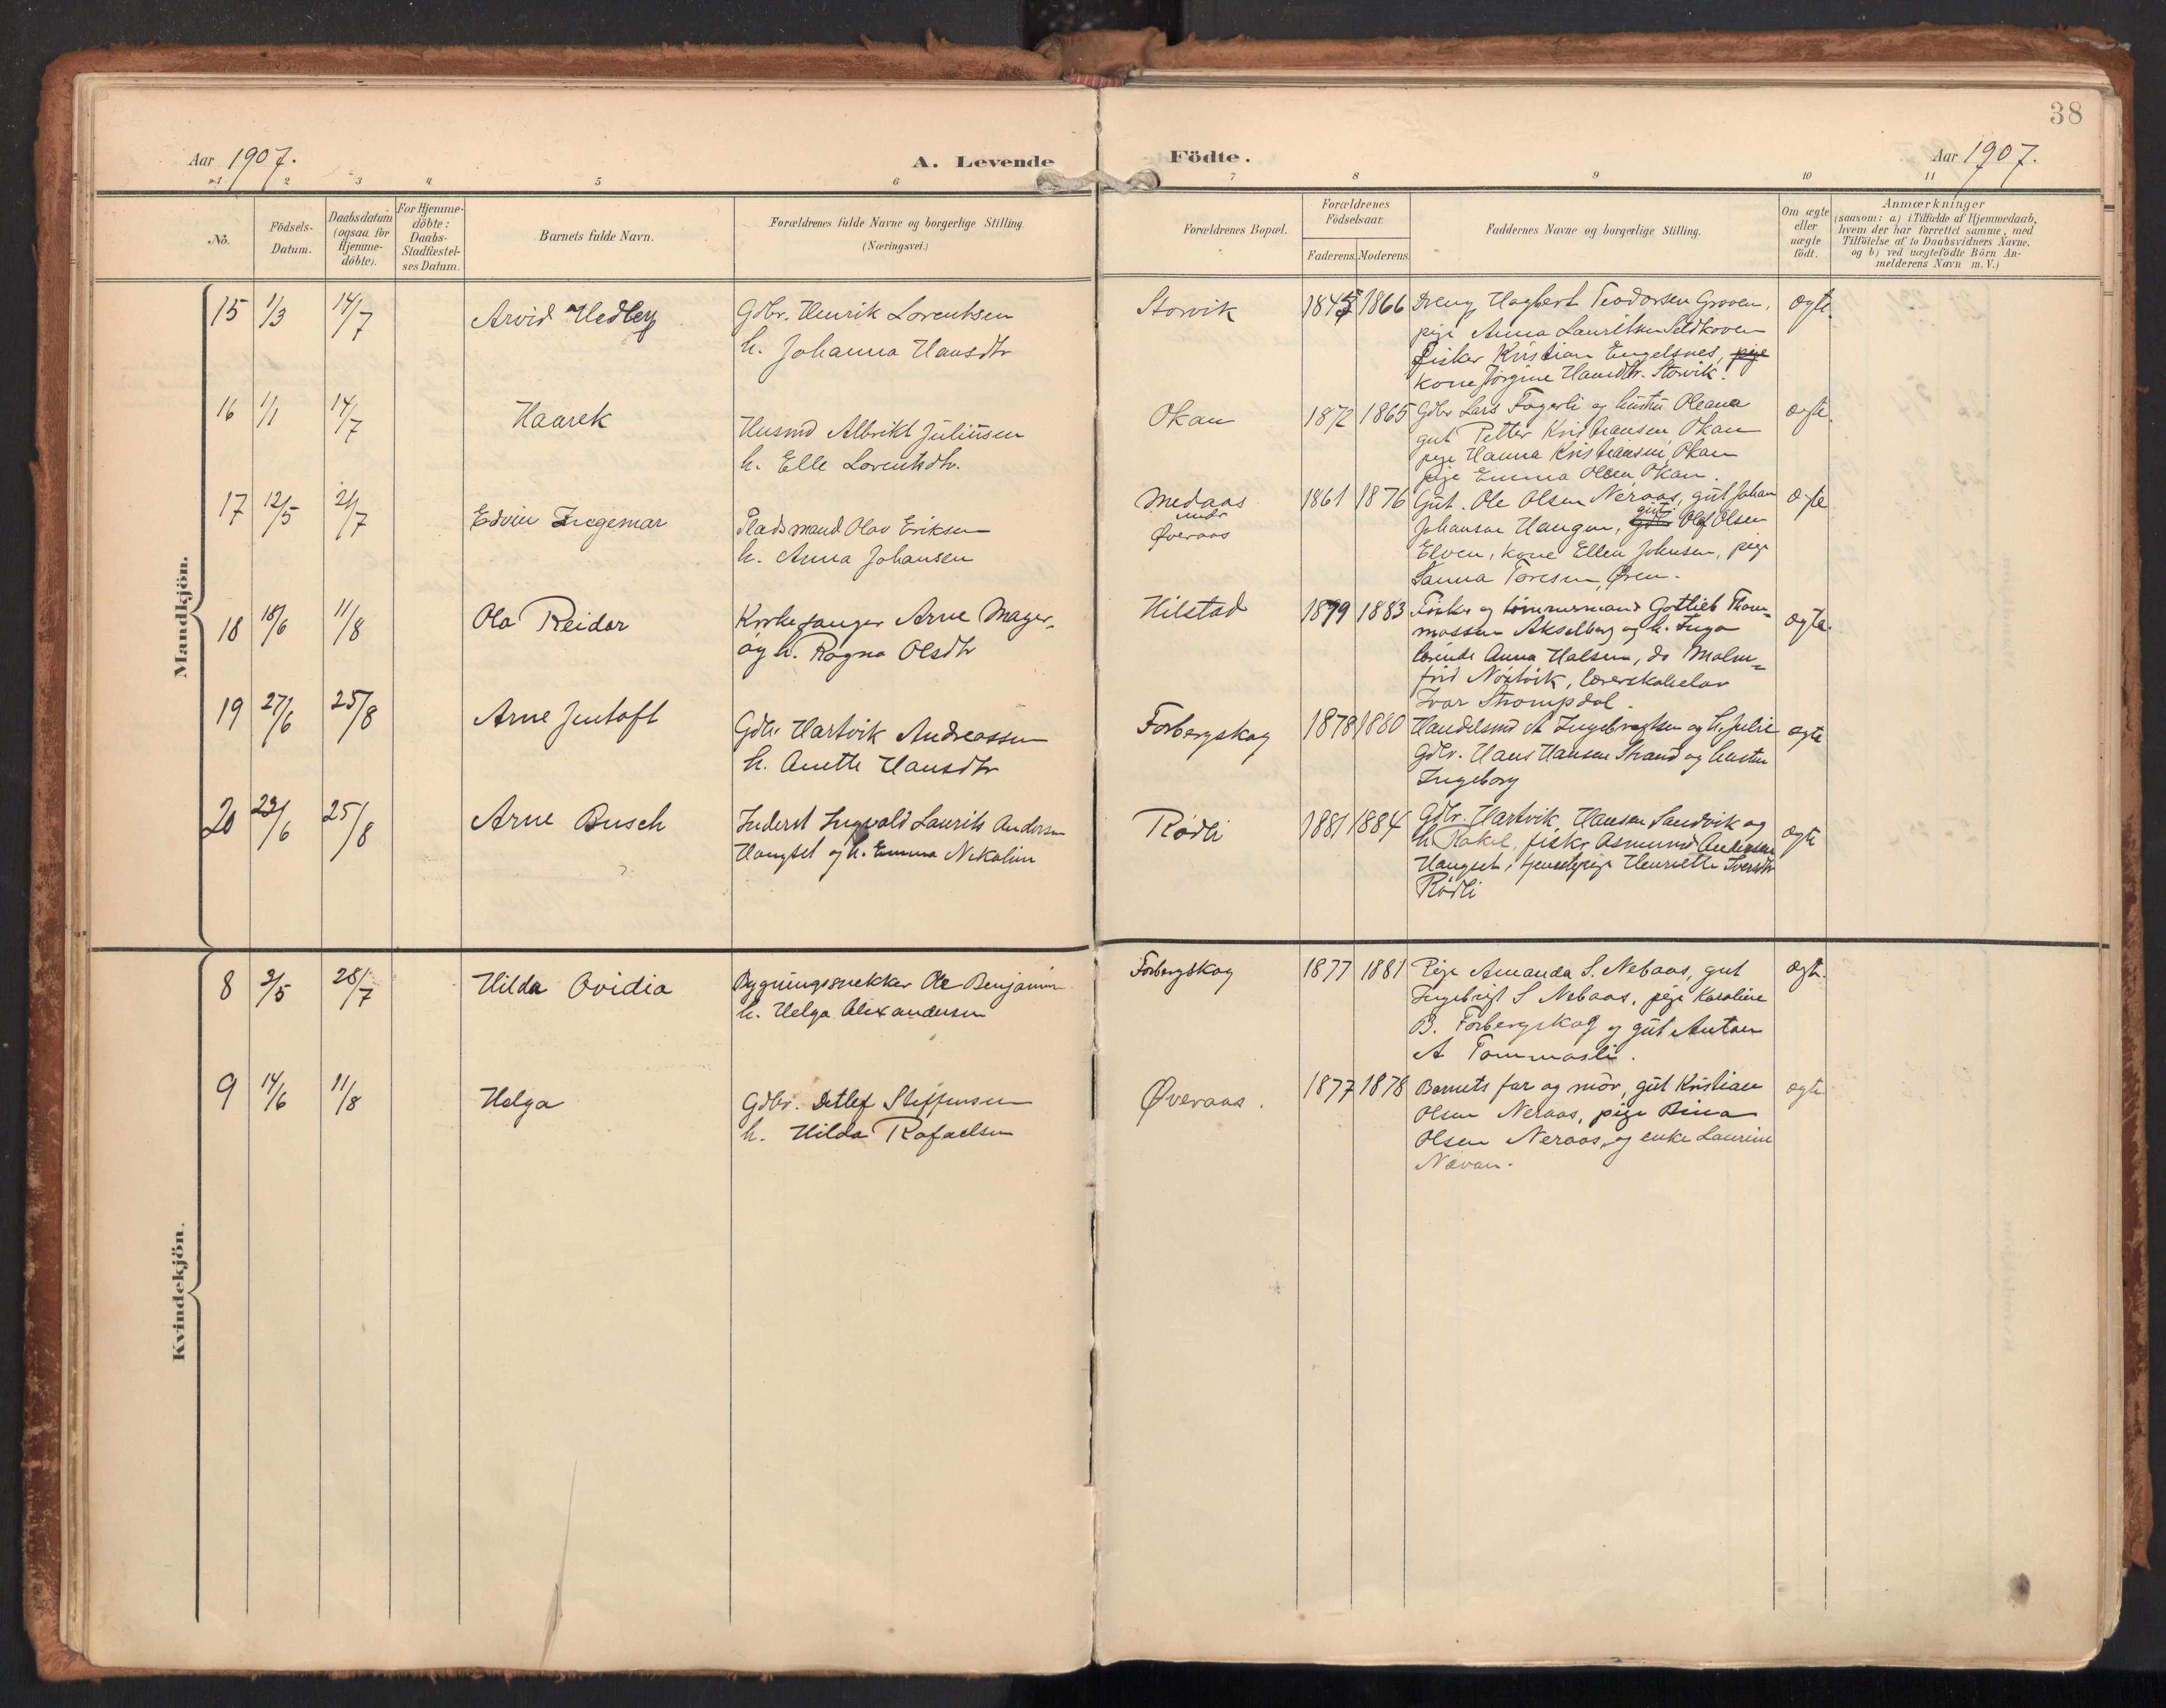 38
Aar 1907.
A. Levende
Födte.
Aar 1907.
1 2 3 4 5 6 7 8 9 10 11
No.
Födsels-
Datum.
Daabsdatum
(ogsaa for
Hjemme-
döbte).
For Hjemme-
döbte:
Daabs-
Stadfæstel-
ses Datum.
Barnets fulde Navn.
Forældrenes fulde Navne og borgerlige Stilling
(Næringsvei.)
Forældrenes Bopæl.
Forældrenes
Födselsaar.
Faderens. Moderens.
Faddernes Navne og borgerlige Stilling.
Om ægte
eller
uægte
födt.
Anmærkninger
(saasom: a) i Tilfælde af Hjemmedaab,
hvem der har forrettet samme, med
Tilföielse af to Daabsvidners Navne.
og b) ved uægtefödte Börn An-
melderens Navn m.V.)
Mandkjön.
15 1/3 14/7 Arvid Hedley
Gdbr. Henrik Lorentsen
h. Johanna Hansdtr
Storvik 1866 ægte.
Dreng Hagbert Teodorsen Groven,
pige Anna Lauritsen
fisker Kristian Engelsnes, pige
kone Jörgine Hansdtr. Storvik.
16 1/1 14/7 Haarek
Husmd Albrikt Juliüsen
h. Elle Lorentsdtr.
Okan 1872 1865 ægte.
Gdbr Lars Fagerli og hustru Oleana
gut Petter Kristiansen, Okan
pige Hanna Kristiansen, Okan
pige Emma Olsen, Okan.
17 12/5 21/7 Edvin Ingemar
Pladsmand Olav Eriksen
h. Anna Johansen
Medaas
undr
Øveraas
1861 1876 ægte
Gut. Ole Olsen Neraas, gut Johan
Johansen Haugen, gut Olaf Olsen
Elven, kone Ellen Johnsen, pige
Sanna Toresen, Øren.
18 18/6 11/8 Ola Reidar
Kirkesanger Arne Mager-
öy h. Ragna Olsdtr
Hilstad 1879 1883 ægte.
Fisker og tömmermand Gottlieb Thom-
massen Akselberg og h. Inga
lærinde Anna Halsen, do Malm-
frid Nöstvik, lærerskoleelev
Ivar Strompdal.
19 27/6 25/8 Arne Jentoft
Gdbr Hartvik Andreassen
h. Anette Hansdtr
Forbergskog 1878 1880 ægte
Handelsmd A Ingebrigtsen og h. Julie
Gdbr. Hans Hansen Strand og hustru
Ingeborg
20 23/6 25/8 Arne Busch
Inderst Ingvald Laurits Andersen
Hongset og h. Emma Nikoline
Rödli 1881 1884 ægte
Gdbr. Hartvik Hansen Sandvik og
h. Rakel, fisker Asmund Andersen
Haugset, tjenestepige Henriette Iversdtr
Rödli
Kvindekjön.
8 2/5 28/7 Hilda Ovidia
Bygningssnekker Ole Benjamin
h. Helga Alexandersen
Forbergskog 1877 1881 ægte.
Pige Amanda S. Nebaas, gut
Ingebrigt S Nebaas, pige Karoline
B. Forbergskog og gut Anton
A Tommasli.
9 14/6 11/8 Helga
Gdbr. Detlef Steffensen
h. Hilda Rafaelsen
Øveraas. 1877 1878 ægte
Barnets far og mor, gut Kristian
Olsen Neraas, pige Bina
Olsen Neraas, og enke Laurine
Navan.